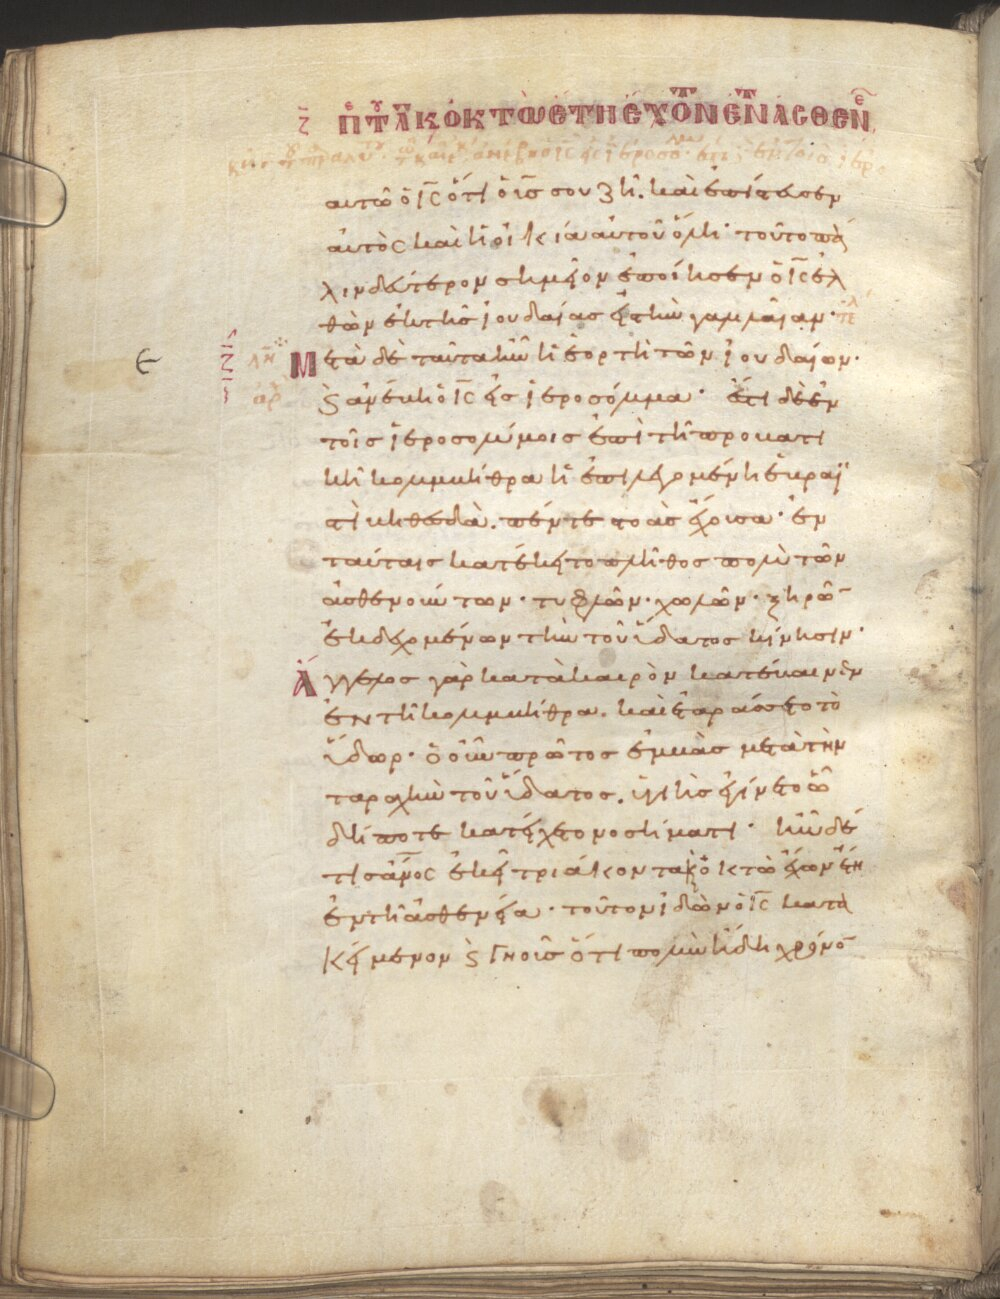 ζ πτ λ κ ὀκτὼ ἔτη ἔχον ἐν ἀσθεν
αυτῶ ὁ ις ὅτι ὁ υἱσ σου ζῆ. καὶ ἐπίστευσεν
αὐτὸς καὶ ἡ οἰκία αὐτοῦ ὅλη· τοῦτο πά
λιν δεύτερον σημεῖον ἐποίησεν ὁ ις ἐλ
θὼν ἐκ τῆς ἰουδαίας εἰς τὴν γαλιλαίαν· τε
Μετὰ δὲ ταῦτα ἦν ἡ ἑορτὴ τῶν ἰουδαίων·
ϗ ἀνέβη ὁ ις εἰς ἱεροσόλυμα· ἔστι δὲ ἐν
τοῖς ἱεροσολύμοις ἐπὶ τῆ προβατι
κῆ κολυμβήθρα ἡ ἐπιλεγομένη ἑβραϊ
στὶ βηθεσδὰ. πέντε στοὰς ἔχουσα· ἐν
ταύταις κατέκειτο πλῆθος πολὺ τῶν
ἀσθενούντων· τυφλῶν· χωλῶν· ξηρῶ
ἐκδεχομένων τὴν τοῦ ὕδατος κίνησιν·
Ἄγγελος γὰρ κατὰ καιρὸν κατέβαινεν
ἐν τῆ κολυμβήθρα. καὶ ἐταράσσετο τὸ
ὕδωρ· ὁ οὖν πρῶτος ἐμβὰς μετὰ τὴν
ταραχὴν τοῦ ὕδατος. ὑγιὴς ἐγίνετο ὧ
δήποτε κατείχετο νοσήματι· ἦν δέ
τις ανος ἐκεῖ τριάκοντα ϗ ὀκτὼ ἔχων ἔτη
ἐν τῆ ἀσθενεία· τοῦτον ἰδὼν ὁ ις κατα
κείμενον ϗ γνοὺς ὅτι πολὺν ἤδη χρόνο